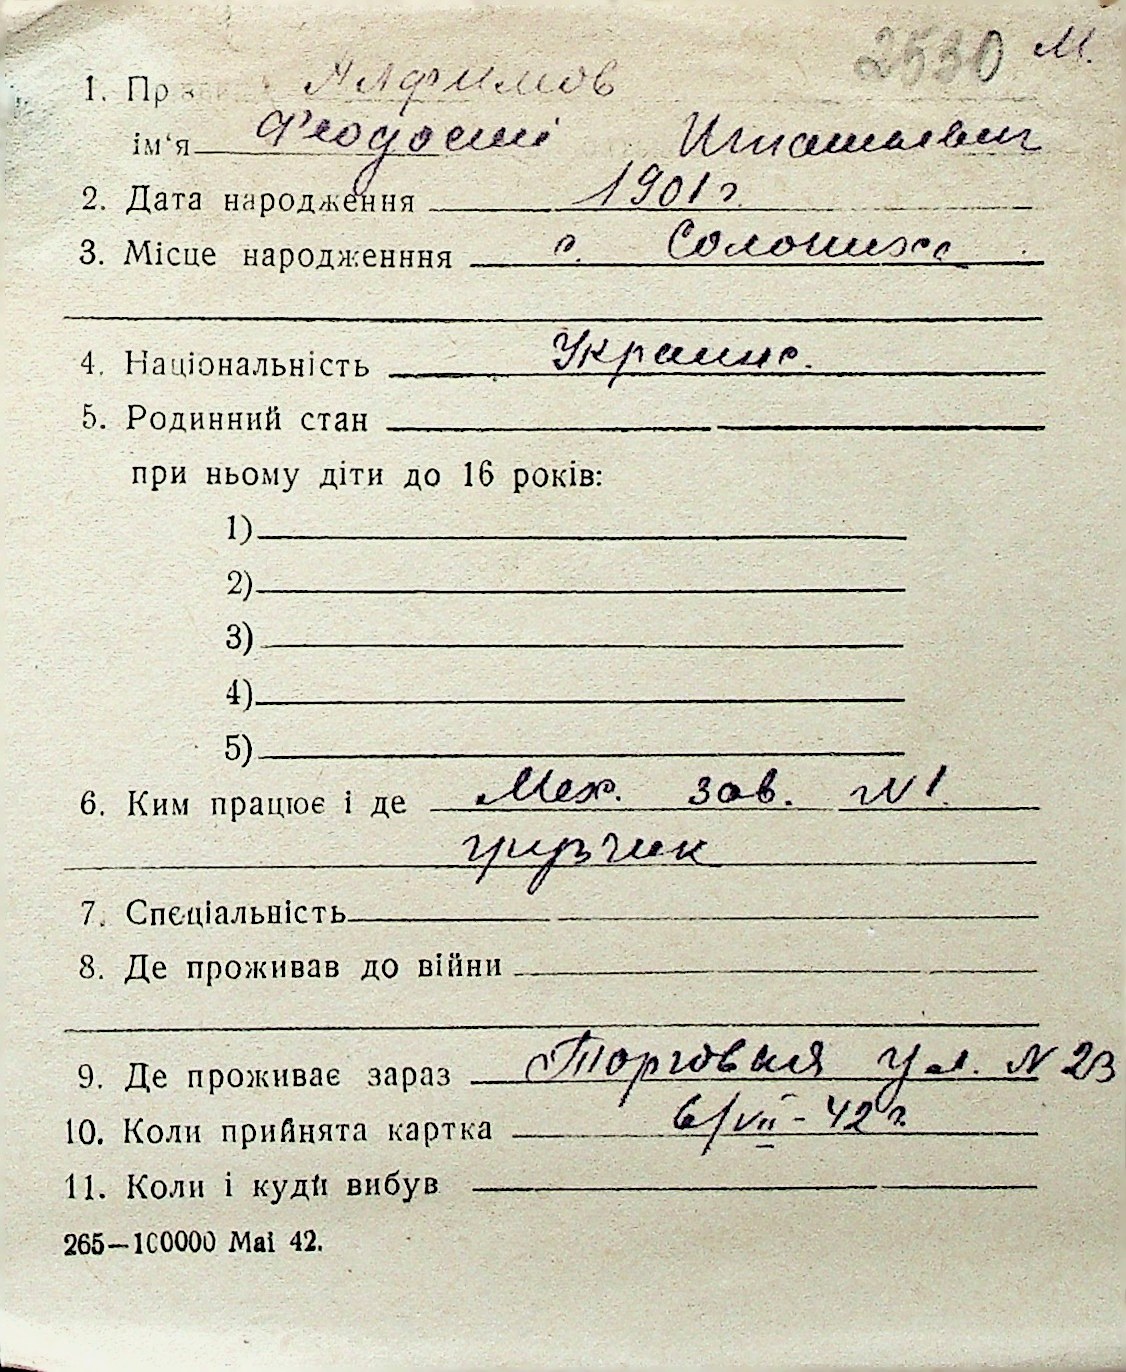 2530 М.
1. Пр Алфимов
ім‘я Феодосий Игнатьевич
2. Дата народження 1901 г.
3. Місце народженння с. Солониха
4. Національність Украинс.
5. Родинний стан
при ньому діти до 16 років:
1)
2)
3)
4)
5)
6. Ким працює і де Мех. зав. N 1.
грузчик
7. Спєціальність
8. Де проживав до війни
9. Де проживає зараз Торговая ул. N 23
10. Коли прийнята картка 6/VII - 42 г.
11. Коли і куди вибув
265—100000 Mai 42.